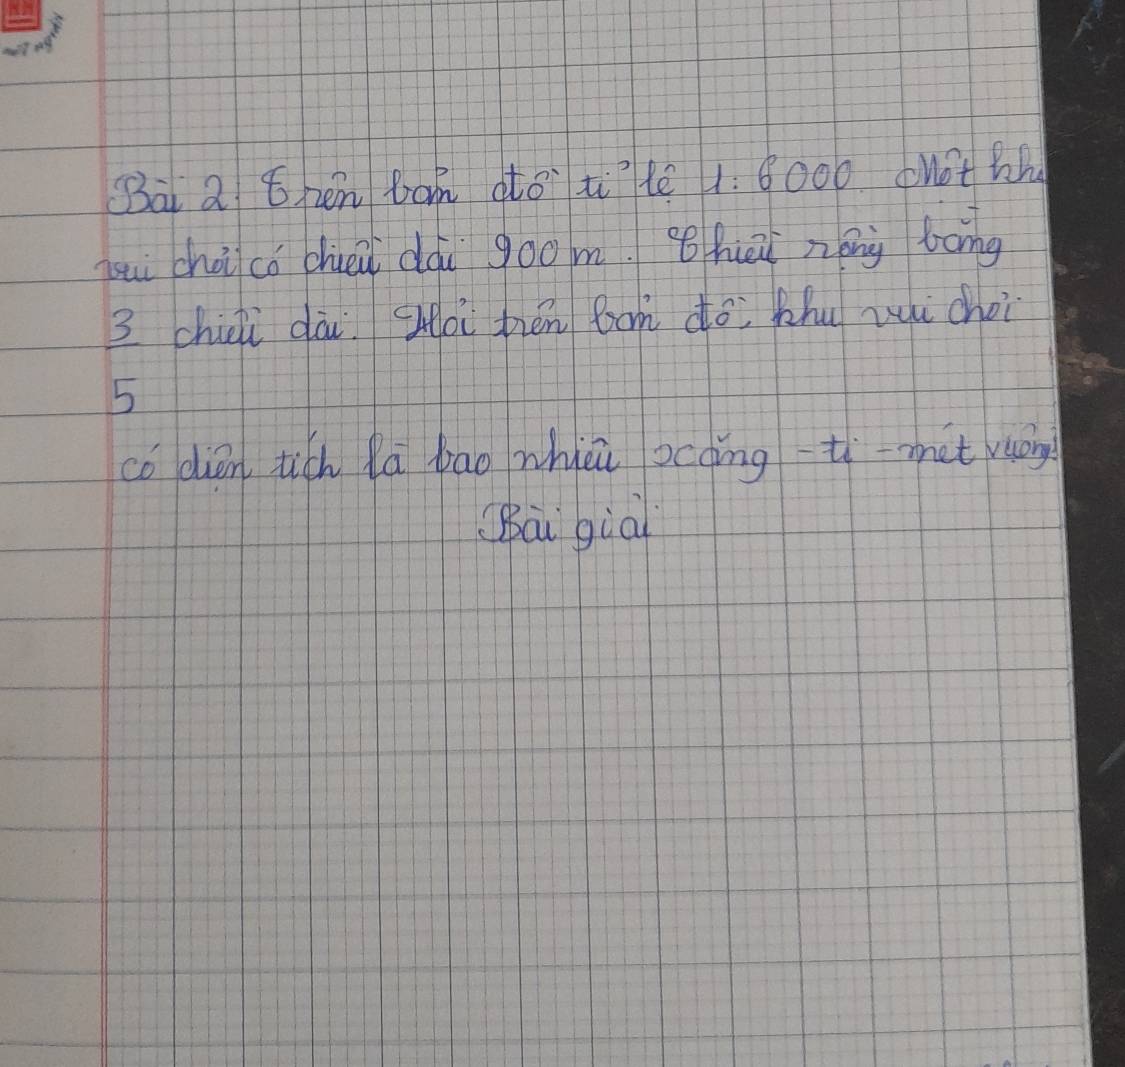 Bài 2: Trên bản đồ tỉ lệ 1:6000 Một khu
vui chơi có chiều dài 900m. Chiều rộng bằng
3 chiều dài. Hỏi trên bản đồ, khu vui chơi
5
có diện tích là bao nhiêu xăng-ti-mét vuông?
Bài giải